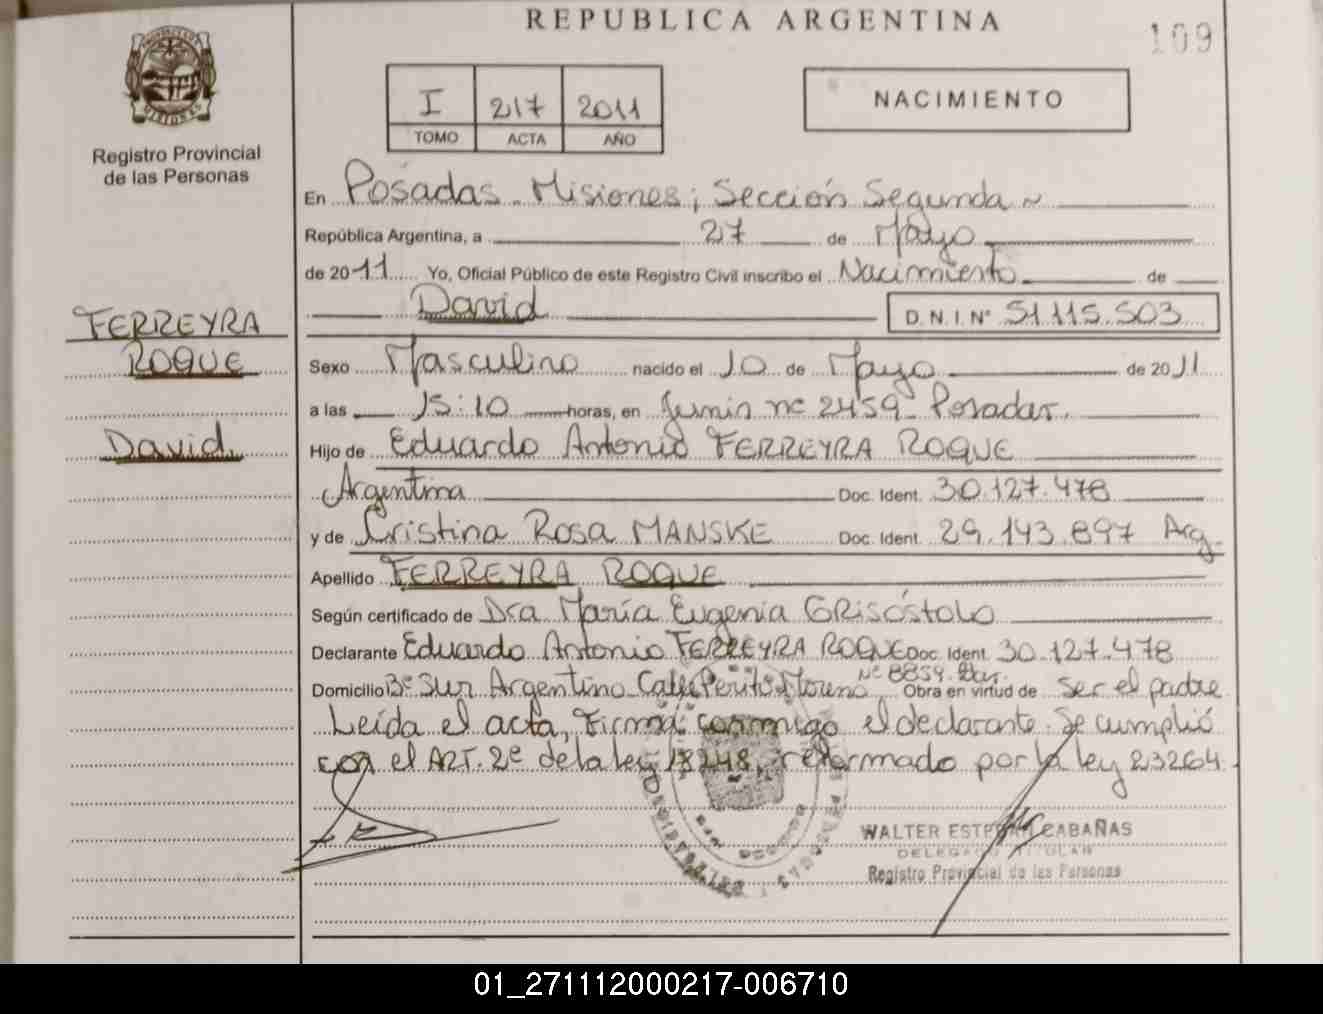 REPUBLICA ARGENTINA
109
I 217 2011
TOMO ACTA AÑO
NACIMIENTO
Registro Provincial
de las Personas
En Posadas - Misiones; Sección Segunda
República Argentina, a 27 de Mayo
de 2011 Yo, Oficial Público de este Registro Civil inscribo el Nacimiento de
David D.N.I. Nº 51.115.503
FERREYRA
ROQUE
David
Sexo Masculino nacido el 10 de Mayo de 2011
a las 15:10 horas, en Junín nº 2459 - Posadas.
Hijo de Eduardo Antonio FERREYRA ROQUE
Argentina Doc. Ident. 30.127.478
y de Cristina Rosa MANSKE Doc. Ident. 29.143.897 Arg.
Apellido FERREYRA ROQUE
Según certificado de Dra María Eugenia GRISÓSTOLO
Declarante Eduardo Antonio FERREYRA ROQUE Doc. Ident. 30.127.478
Domicilio Bº Sur Argentino Calle Perito Moreno Nº 8859. Obra en virtud de ser el padre
Leída el acta, Firma conmigo el declarante. Se cumplió
con el ART. 2º de la ley 18248, reformado por la ley 23264
WALTER ESTEBAN CABAÑAS
DELEGADO TITULAR
Registro Provincial de las Personas
01_271112000217-006710